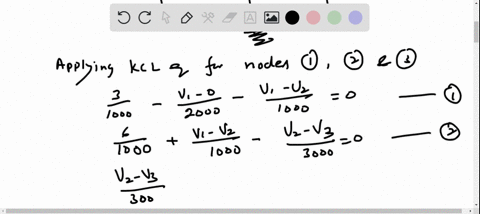 Applying KCL eq for nodes ①, ② & ③
3/1000 - (V1-0)/2000 - (V1-U2)/1000 = 0 —— ①
6/1000 + (V1-V2)/1000 - (U2-V3)/3000 = 0 —— ②
(U2-V3)/300